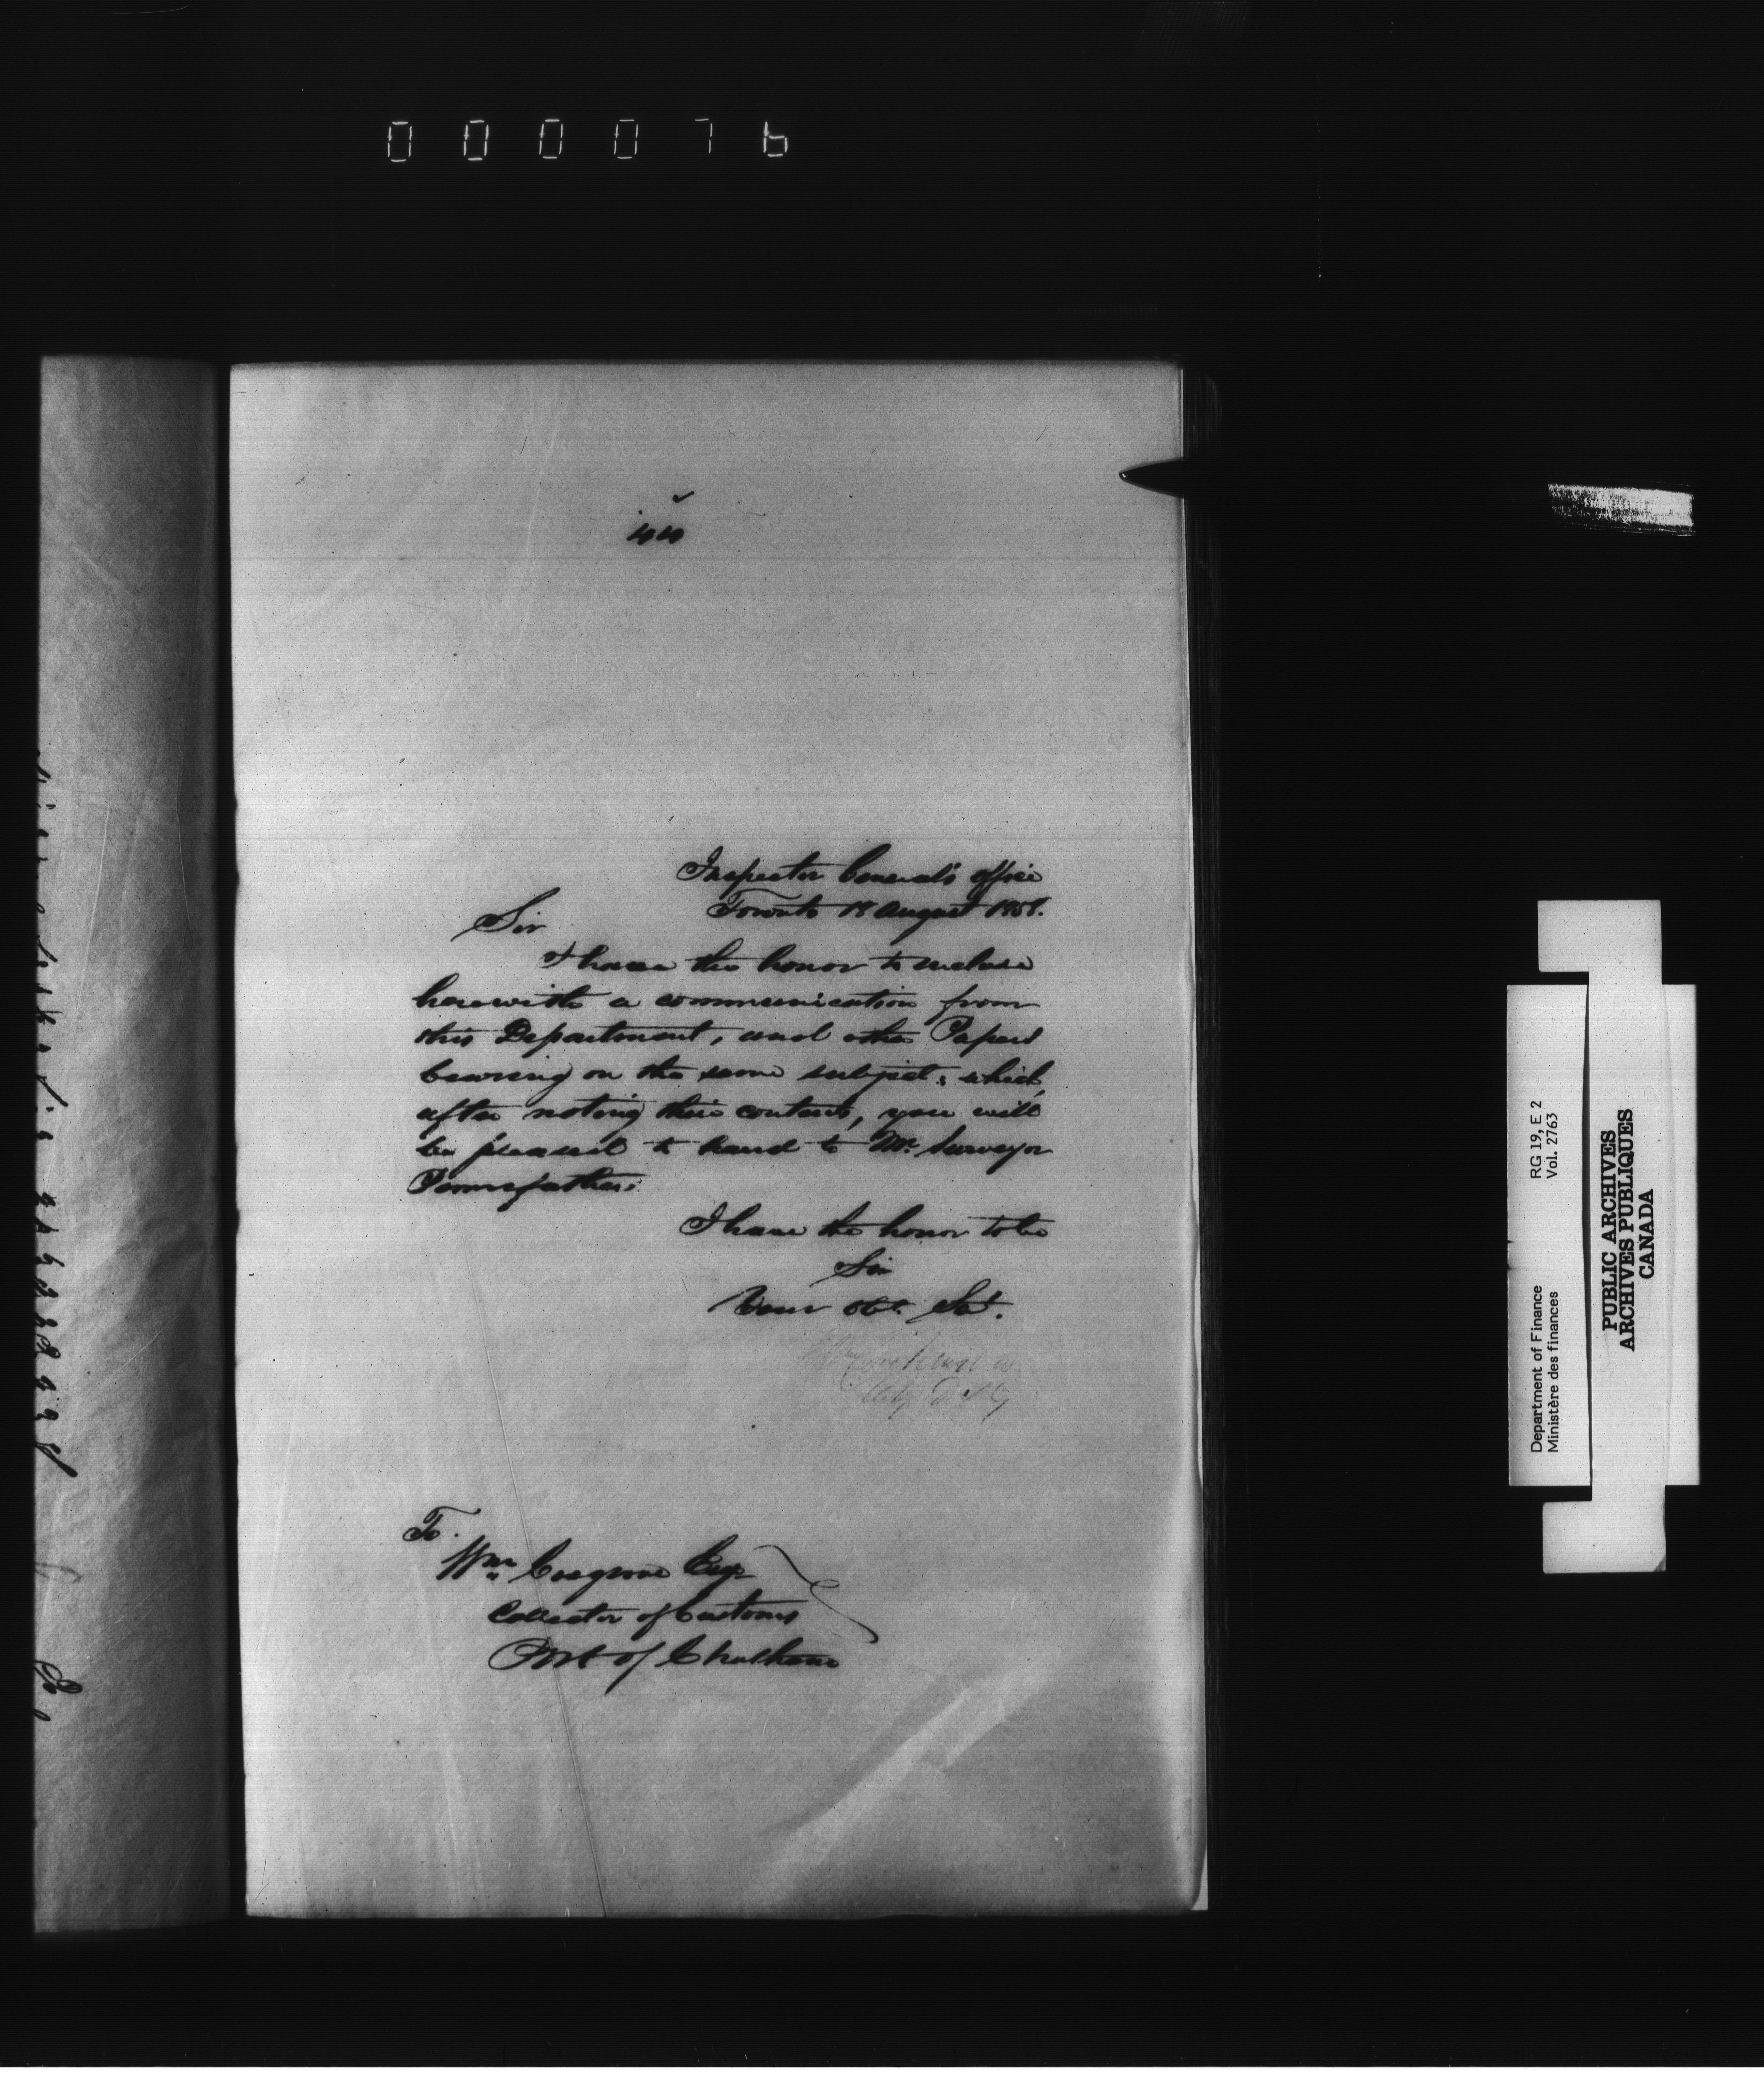 000076
Inspector General's office
Toronto 18 August 1858.
Sir
I have the honor to enclose
herewith a communication from
this Department, and other Papers
bearing on the same subject; which,
after noting their contents, you will
be pleased to hand to Mr. Surveyor
Pennefather.
I have the honor to be
Sir
Your Obt. Svt.
To.
Wm Cosgrove Esqr
Collector of Customs
Port of Chatham
Department of Finance RG 19, E 2
Ministère des finances Vol. 2763
PUBLIC ARCHIVES
ARCHIVES PUBLIQUES
CANADA